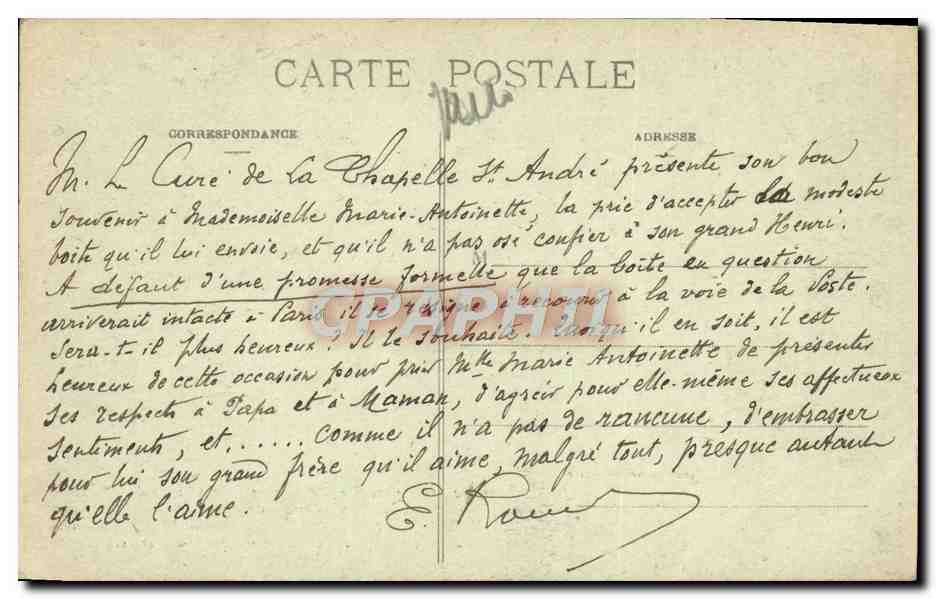 CARTE POSTALE
CORRESPONDANCE
ADRESSE
Mr. Le Curé de La Chapelle St. André présente son bon
souvenir à Mademoiselle Marie-Antoinette, la prie d'accepter la modeste
boite qu'il lui envoie, et qu'il n'a pas osé confier à son grand Henri.
A défaut d'une promesse formelle que la boîte en question
arriverait intacte à Paris il se résigne à recourir à la voie de la Poste.
Sera-t-il plus heureux? Il le souhaite. Quoiqu'il en soit, il est
heureux de cette occasion pour prier Mlle Marie Antoinette de présenter
ses respects à Papa et à Maman, d'agréer pour elle-même ses affectueux
sentiments, et ..... comme il n'a pas de rancune, d'embrasser
pour lui son grand frère qu'il aime, malgré tout, presque autant
qu'elle l'aime.
E.
CPAPHIL